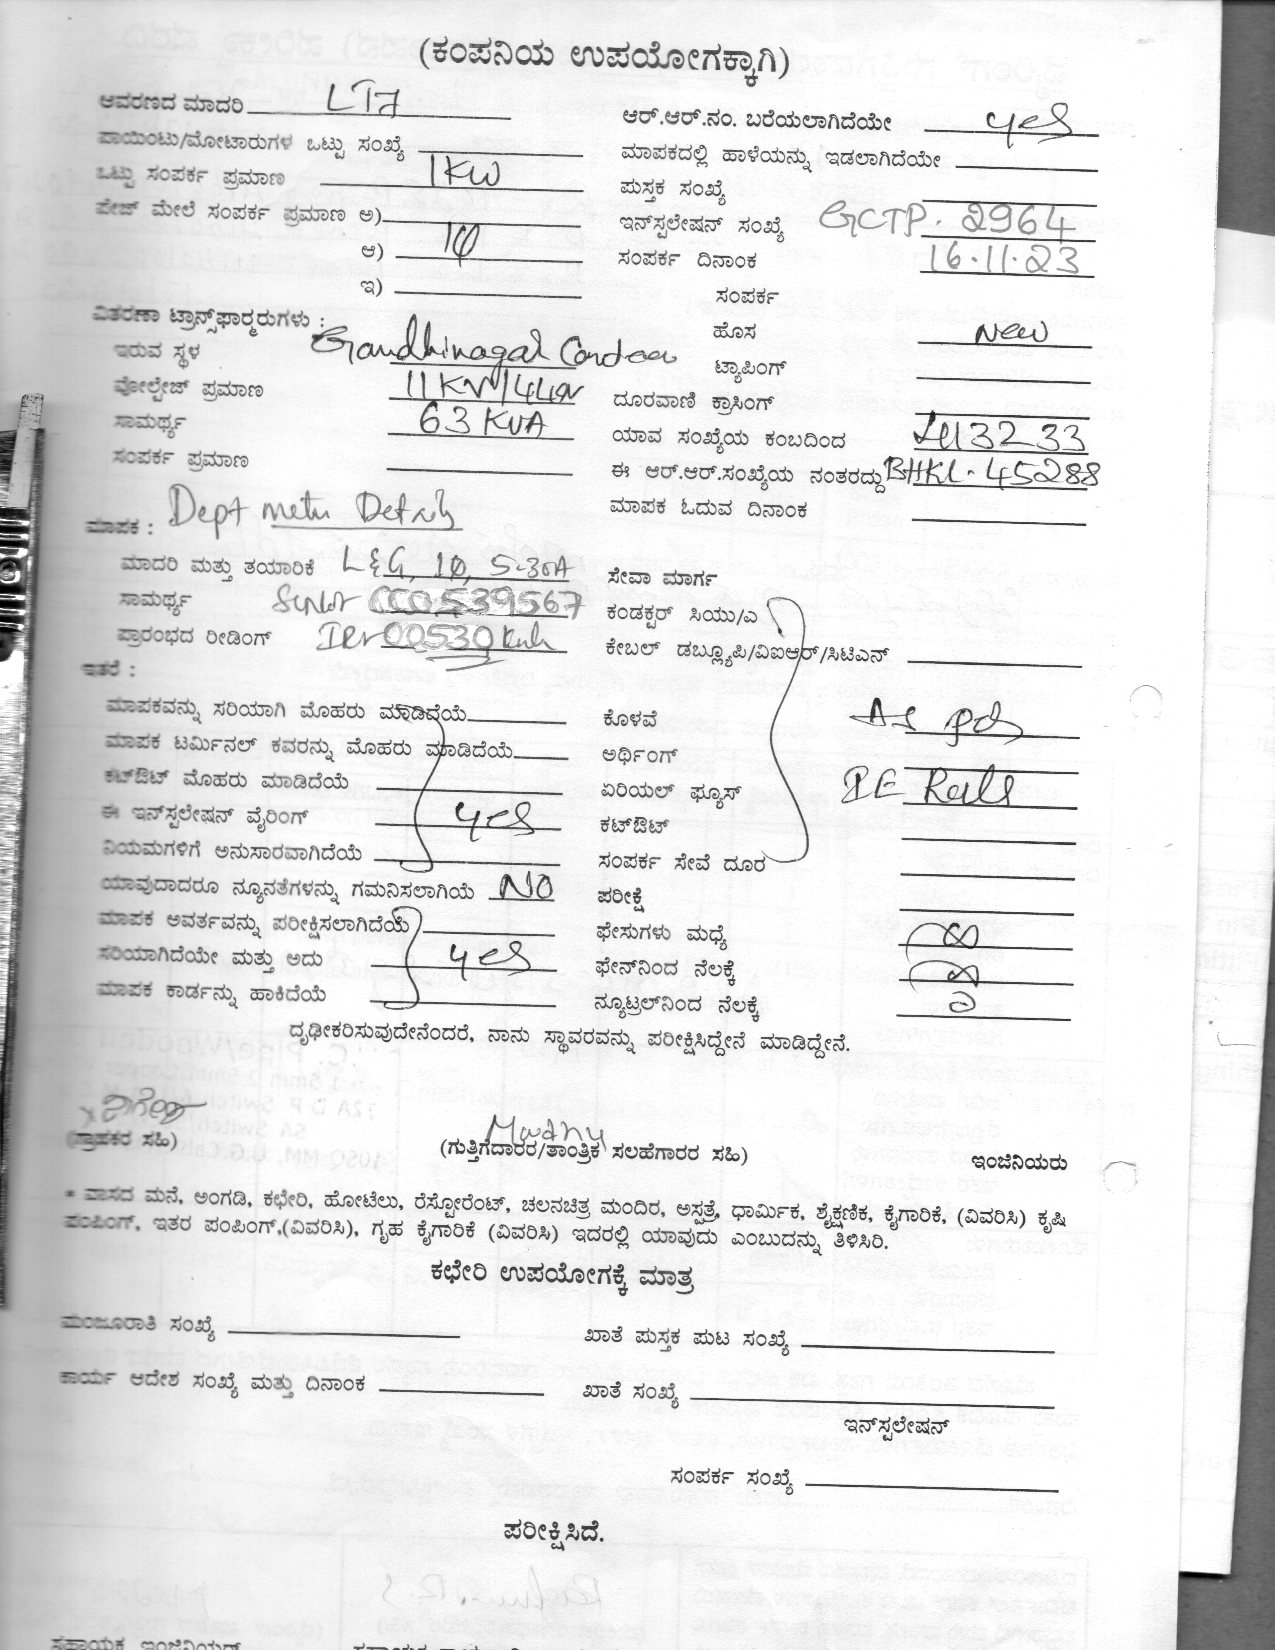 (ಕಂಪನಿಯ ಉಪಯೋಗಕ್ಕಾಗಿ)
ಆವರಣದ ಮಾದರಿ LT7
ಪಾಯಿಂಟು/ಮೋಟಾರುಗಳ ಒಟ್ಟು ಸಂಖ್ಯೆ
ಒಟ್ಟು ಸಂಪರ್ಕ ಪ್ರಮಾಣ 1KW
ಪೇಜ್ ಮೇಲೆ ಸಂಪರ್ಕ ಪ್ರಮಾಣ ಅ)
ಆ) 1φ
ಇ)
ವಿತರಣಾ ಟ್ರಾನ್ಸ್‌ಫಾರ್ಮರುಗಳು :
ಇರುವ ಸ್ಥಳ Gandhinagar
ವೋಲ್ಟೇಜ್ ಪ್ರಮಾಣ 11KV/44
ಸಾಮರ್ಥ್ಯ 63 KVA
ಸಂಪರ್ಕ ಪ್ರಮಾಣ
ಆರ್.ಆರ್.ನಂ. ಬರೆಯಲಾಗಿದೆಯೇ yes
ಮಾಪಕದಲ್ಲಿ ಹಾಳೆಯನ್ನು ಇಡಲಾಗಿದೆಯೇ
ಪುಸ್ತಕ ಸಂಖ್ಯೆ
ಇನ್‌ಸ್ಟಲೇಷನ್ ಸಂಖ್ಯೆ GCTP. 2964
ಸಂಪರ್ಕ ದಿನಾಂಕ 16.11.23
ಸಂಪರ್ಕ
ಹೊಸ New
ಟ್ಯಾಪಿಂಗ್
ದೂರವಾಣಿ ಕ್ರಾಸಿಂಗ್
ಯಾವ ಸಂಖ್ಯೆಯ ಕಂಬದಿಂದ 13233
ಈ ಆರ್.ಆರ್.ಸಂಖ್ಯೆಯ ನಂತರದ್ದು BHKL-45288
ಮಾಪಕ ಓದುವ ದಿನಾಂಕ
ಮಾಪಕ : Dept meter Details
ಮಾದರಿ ಮತ್ತು ತಯಾರಿಕೆ L&G, 1φ, 5-30A
ಸಾಮರ್ಥ್ಯ CC0539567
ಪ್ರಾರಂಭದ ರೀಡಿಂಗ್ IR 00530 Kwh
ಇತರೆ :
ಮಾಪಕವನ್ನು ಸರಿಯಾಗಿ ಮೊಹರು ಮಾಡಿದೆಯೆ
ಮಾಪಕ ಟರ್ಮಿನಲ್ ಕವರನ್ನು ಮೊಹರು ಮಾಡಿದೆಯೆ
ಕಟ್‌ಔಟ್ ಮೊಹರು ಮಾಡಿದೆಯೆ
ಈ ಇನ್‌ಸ್ಟಲೇಷನ್ ವೈರಿಂಗ್ yes
ನಿಯಮಗಳಿಗೆ ಅನುಸಾರವಾಗಿದೆಯೆ
ಯಾವುದಾದರೂ ನ್ಯೂನತೆಗಳನ್ನು ಗಮನಿಸಲಾಗಿಯೆ NO
ಮಾಪಕ ಅವರ್ತವನ್ನು ಪರೀಕ್ಷಿಸಲಾಗಿದೆಯೆ
ಸರಿಯಾಗಿದೆಯೇ ಮತ್ತು ಅದು yes
ಮಾಪಕ ಕಾರ್ಡನ್ನು ಹಾಕಿದೆಯೆ
ಸೇವಾ ಮಾರ್ಗ
ಕಂಡಕ್ಟರ್ ಸಿಯು/ಎ
ಕೇಬಲ್ ಡಬ್ಲ್ಯೂಪಿ/ವಿಐಆರ್/ಸಿಟಿಎನ್
ಕೊಳವೆ As per
ಅರ್ಥಿಂಗ್
ಏರಿಯಲ್ ಫ್ಯೂಸ್ IE Rules
ಕಟ್‌ಔಟ್
ಸಂಪರ್ಕ ಸೇವೆ ದೂರ
ಪರೀಕ್ಷೆ
ಫೇಸುಗಳು ಮಧ್ಯೆ ∞
ಫೇನ್‌ನಿಂದ ನೆಲಕ್ಕೆ ∞
ನ್ಯೂಟ್ರಲ್‌ನಿಂದ ನೆಲಕ್ಕೆ
ದೃಢೀಕರಿಸುವುದೇನೆಂದರೆ, ನಾನು ಸ್ಥಾವರವನ್ನು ಪರೀಕ್ಷಿಸಿದ್ದೇನೆ ಮಾಡಿದ್ದೇನೆ.
(ಗ್ರಾಹಕರ ಸಹಿ)
(ಗುತ್ತಿಗೆದಾರರ/ತಾಂತ್ರಿಕ ಸಲಹೆಗಾರರ ಸಹಿ)
ಇಂಜಿನಿಯರು
* ವಾಸದ ಮನೆ, ಅಂಗಡಿ, ಕಛೇರಿ, ಹೋಟೆಲು, ರೆಸ್ಟೋರೆಂಟ್, ಚಲನಚಿತ್ರ ಮಂದಿರ, ಅಸ್ಪತ್ರೆ, ಧಾರ್ಮಿಕ, ಶೈಕ್ಷಣಿಕ, ಕೈಗಾರಿಕೆ, (ವಿವರಿಸಿ) ಕೃಷಿ
ಪಂಪಿಂಗ್, ಇತರ ಪಂಪಿಂಗ್,(ವಿವರಿಸಿ), ಗೃಹ ಕೈಗಾರಿಕೆ (ವಿವರಿಸಿ) ಇದರಲ್ಲಿ ಯಾವುದು ಎಂಬುದನ್ನು ತಿಳಿಸಿರಿ.
ಕಛೇರಿ ಉಪಯೋಗಕ್ಕೆ ಮಾತ್ರ
ಮಂಜೂರಾತಿ ಸಂಖ್ಯೆ
ಖಾತೆ ಪುಸ್ತಕ ಪುಟ ಸಂಖ್ಯೆ
ಕಾರ್ಯ ಆದೇಶ ಸಂಖ್ಯೆ ಮತ್ತು ದಿನಾಂಕ
ಖಾತೆ ಸಂಖ್ಯೆ
ಇನ್‌ಸ್ಟಲೇಷನ್
ಸಂಪರ್ಕ ಸಂಖ್ಯೆ
ಪರೀಕ್ಷಿಸಿದೆ.
ಸಹಾಯಕ ಇಂಜಿನಿಯರ್